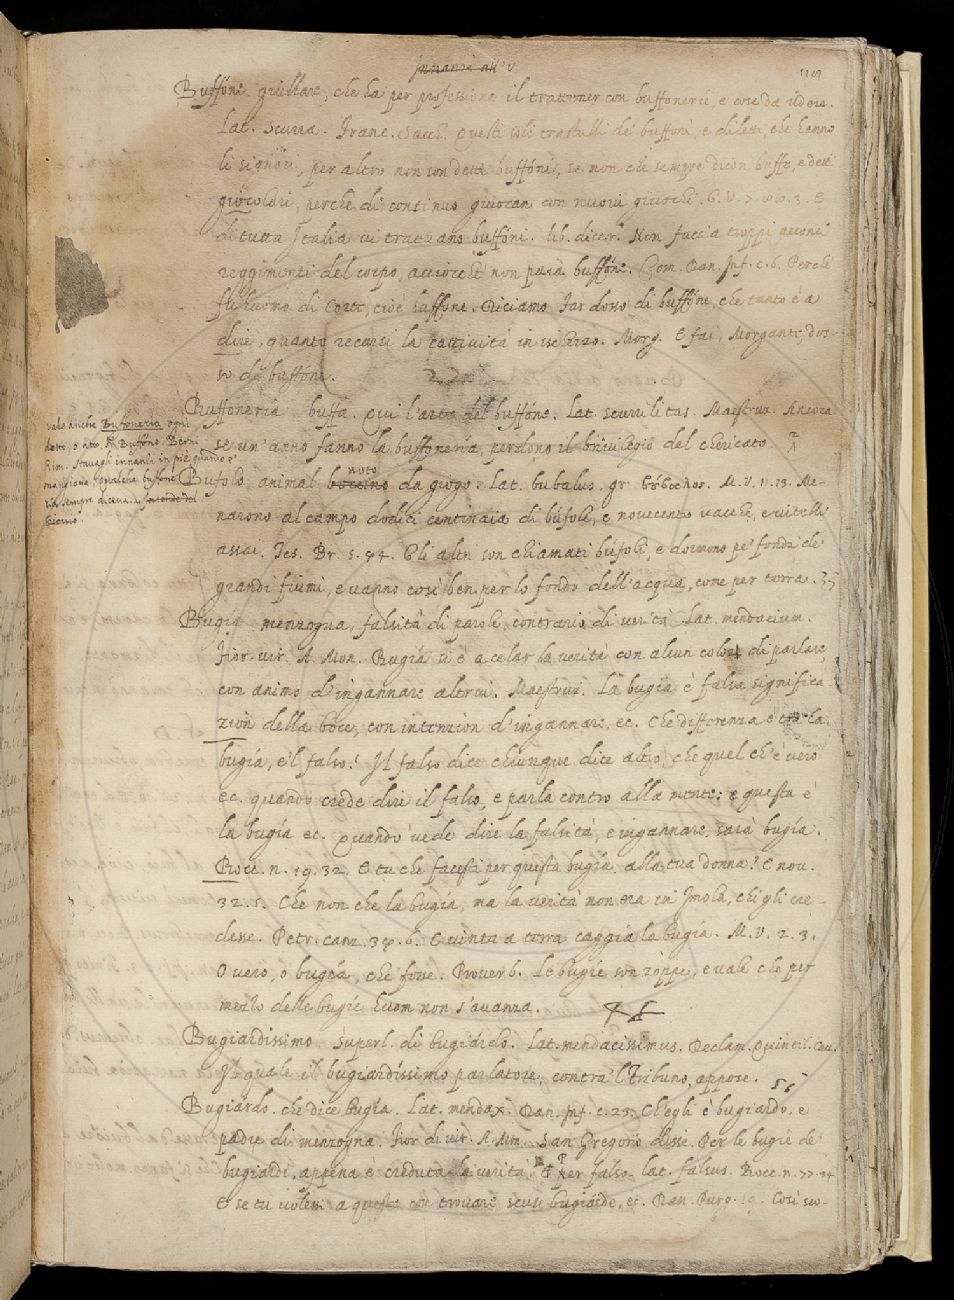 innanzi all' V
1101
Buffóne. giullare, che ha per professione il trattener con buffonerie, e cose da ridere.
Lat. Scurra. Franc. Sacch. Questi tali trastulli de' buffoni, e diletti, che hanno
li signori, per altro non son detti buffóni, se non che sempre dicon buffe, e detti
giocolári, perchè di continuo giuocan con nuovi giuochi. G. V. 7. 3. E
di tutta Italia vi trattano buffóni. lib. dicer. Non faccia troppi
reggimenti del corpo, acciocchè non paia buffóne. Com. Dan. Inf. c. 6. Perchè
fu huomo di Corte, cioè buffone. Diciamo Far dosso di buffóne, che tanto è a
dire, quanto recarsi la cattività in ischerzo. Morg. E fai, Morgante, dos-
so di buffóne.
Buffonería buffa. Qui l'arte del buffóne. Lat. scurrilitas. Maestruz. Ancora
se un' anno fanno la buffonería, perdono il brivilegio del chericato.
vale anche Buffoneria ogni
detto, o atto di Buffóne. Berni
Rim. Stavagli innanzi in piè quando e'
mangiava qualche buffone
sempre diceva
Búfolo, animal noto da giogo. Lat. bubalus. gr. βούβαλος. M. V. 11. 13. Me-
narono al campo dodici centinaia di búfole, e novecento vacche, e vitelle
assai. Tes. Br. 5. 44. Gli altri son chiamati búfoli, e dormono pe' fondi de'
grandi fiumi, e vanno così ben per lo fondo dell'acqua, come per terra.
Bugía menzogna, falsità di parole, contrario di verità. Lat. mendacium.
Fior. vir. A. Mon. Bugía si è a celar la verità con alcun color di parlare,
con animo d'ingannare altrui. Maestruz. La bugía è falsa significa
zion della boce, con intenzion d'ingannare, ec. Che differenza è tra la
bugía, e 'l falso? Il falso dice chiunque dice altro, che quel ch'è vero
ec. quando crede dire il falso, e parla contro alla mente: e questa è
la bugía ec. quando vede dire la falsità, e ingannare, sarà bugía.
Bocc. n. 19. 32. E tu che facesti per questa bugía alla tua donna? E nov.
32. 5. Che non che la bugía, ma la verità non era in Imola, chi gli cre-
desse. Petr. canz. 39. 6. E vinta a terra caggia la bugía. M. V. 2. 3.
O vero, o bugía, che fosse. Proverb. Le bugíe son zoppe, e vale che per
mezzo delle bugíe huom non s'avanza.
Bugiardissimo Superl. di bugiárdo. Lat. mendacissimus. Declam. Quintil.
Il quale il bugiardíssimo parlatore, contra 'l Tribuno, appose.
Bugiárdo. che dice bugía. Lat. mendax. Dan. Inf. c. 23. Ch'egli è bugiardo, e
padre di menzogna. Fior di vir. A. Mon. San Gregorio disse. Per le bugíe de'
bugiardi, appena è creduta la verità. Per falso. lat. falsus. Bocc. n. 77. 34
E se tu volessi a queste cose trovare scuse bugiarde, ec. Dan. Purg. 19. Così sco-